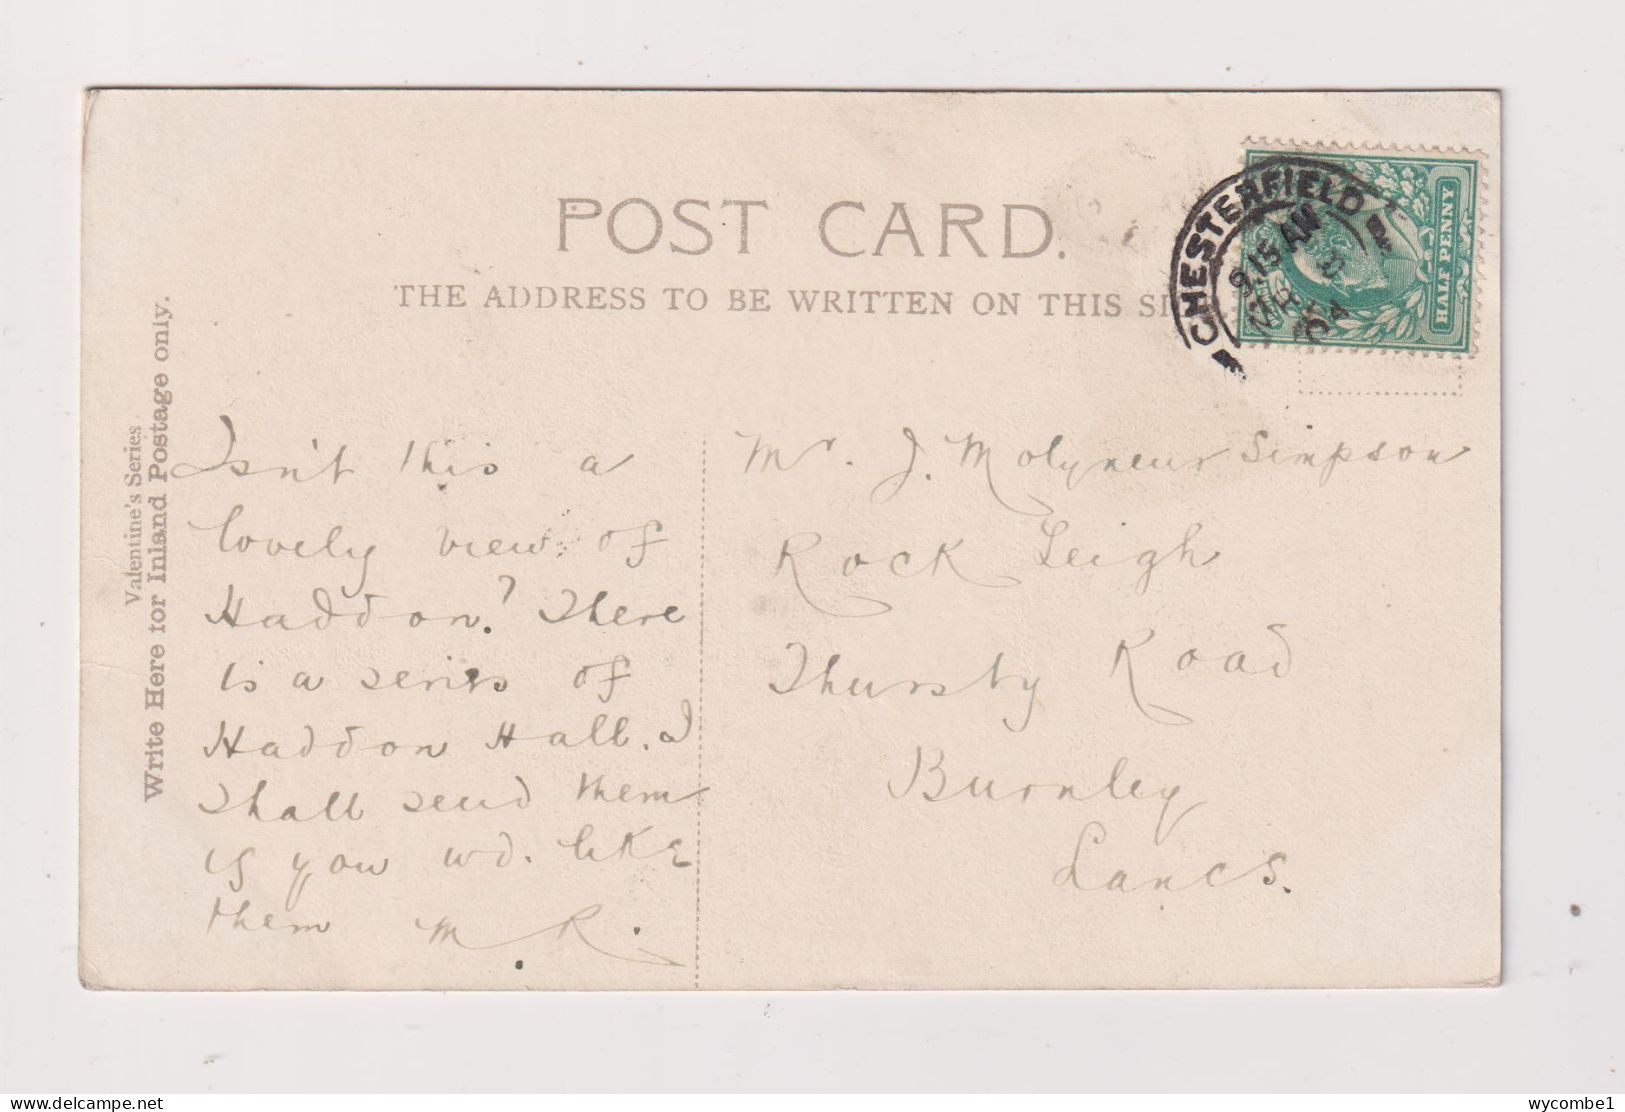 POST CARD.
THE ADDRESS TO BE WRITTEN ON THIS
CHESTERFIELD
9.15 AM
04
HALF PENNY
Valentine's Series
Write Here for Inland Postage only.
Isn't this a
lovely view of
Haddon? There
is a series of
Haddon Hall. I
shall send them
if you wd. like
them M. R.
Mr. J. Molyneux Simpson
Rock Leigh
Thursby Road
Burnley
Lancs.
wycombe1